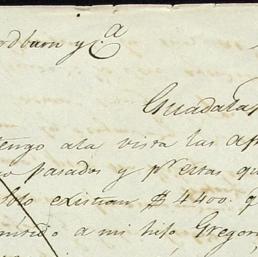 dburn y Cª
Guadala
engo a la vista las
pasados y pr estas qu
existian $ 4400. q
a mi hijo Gregor